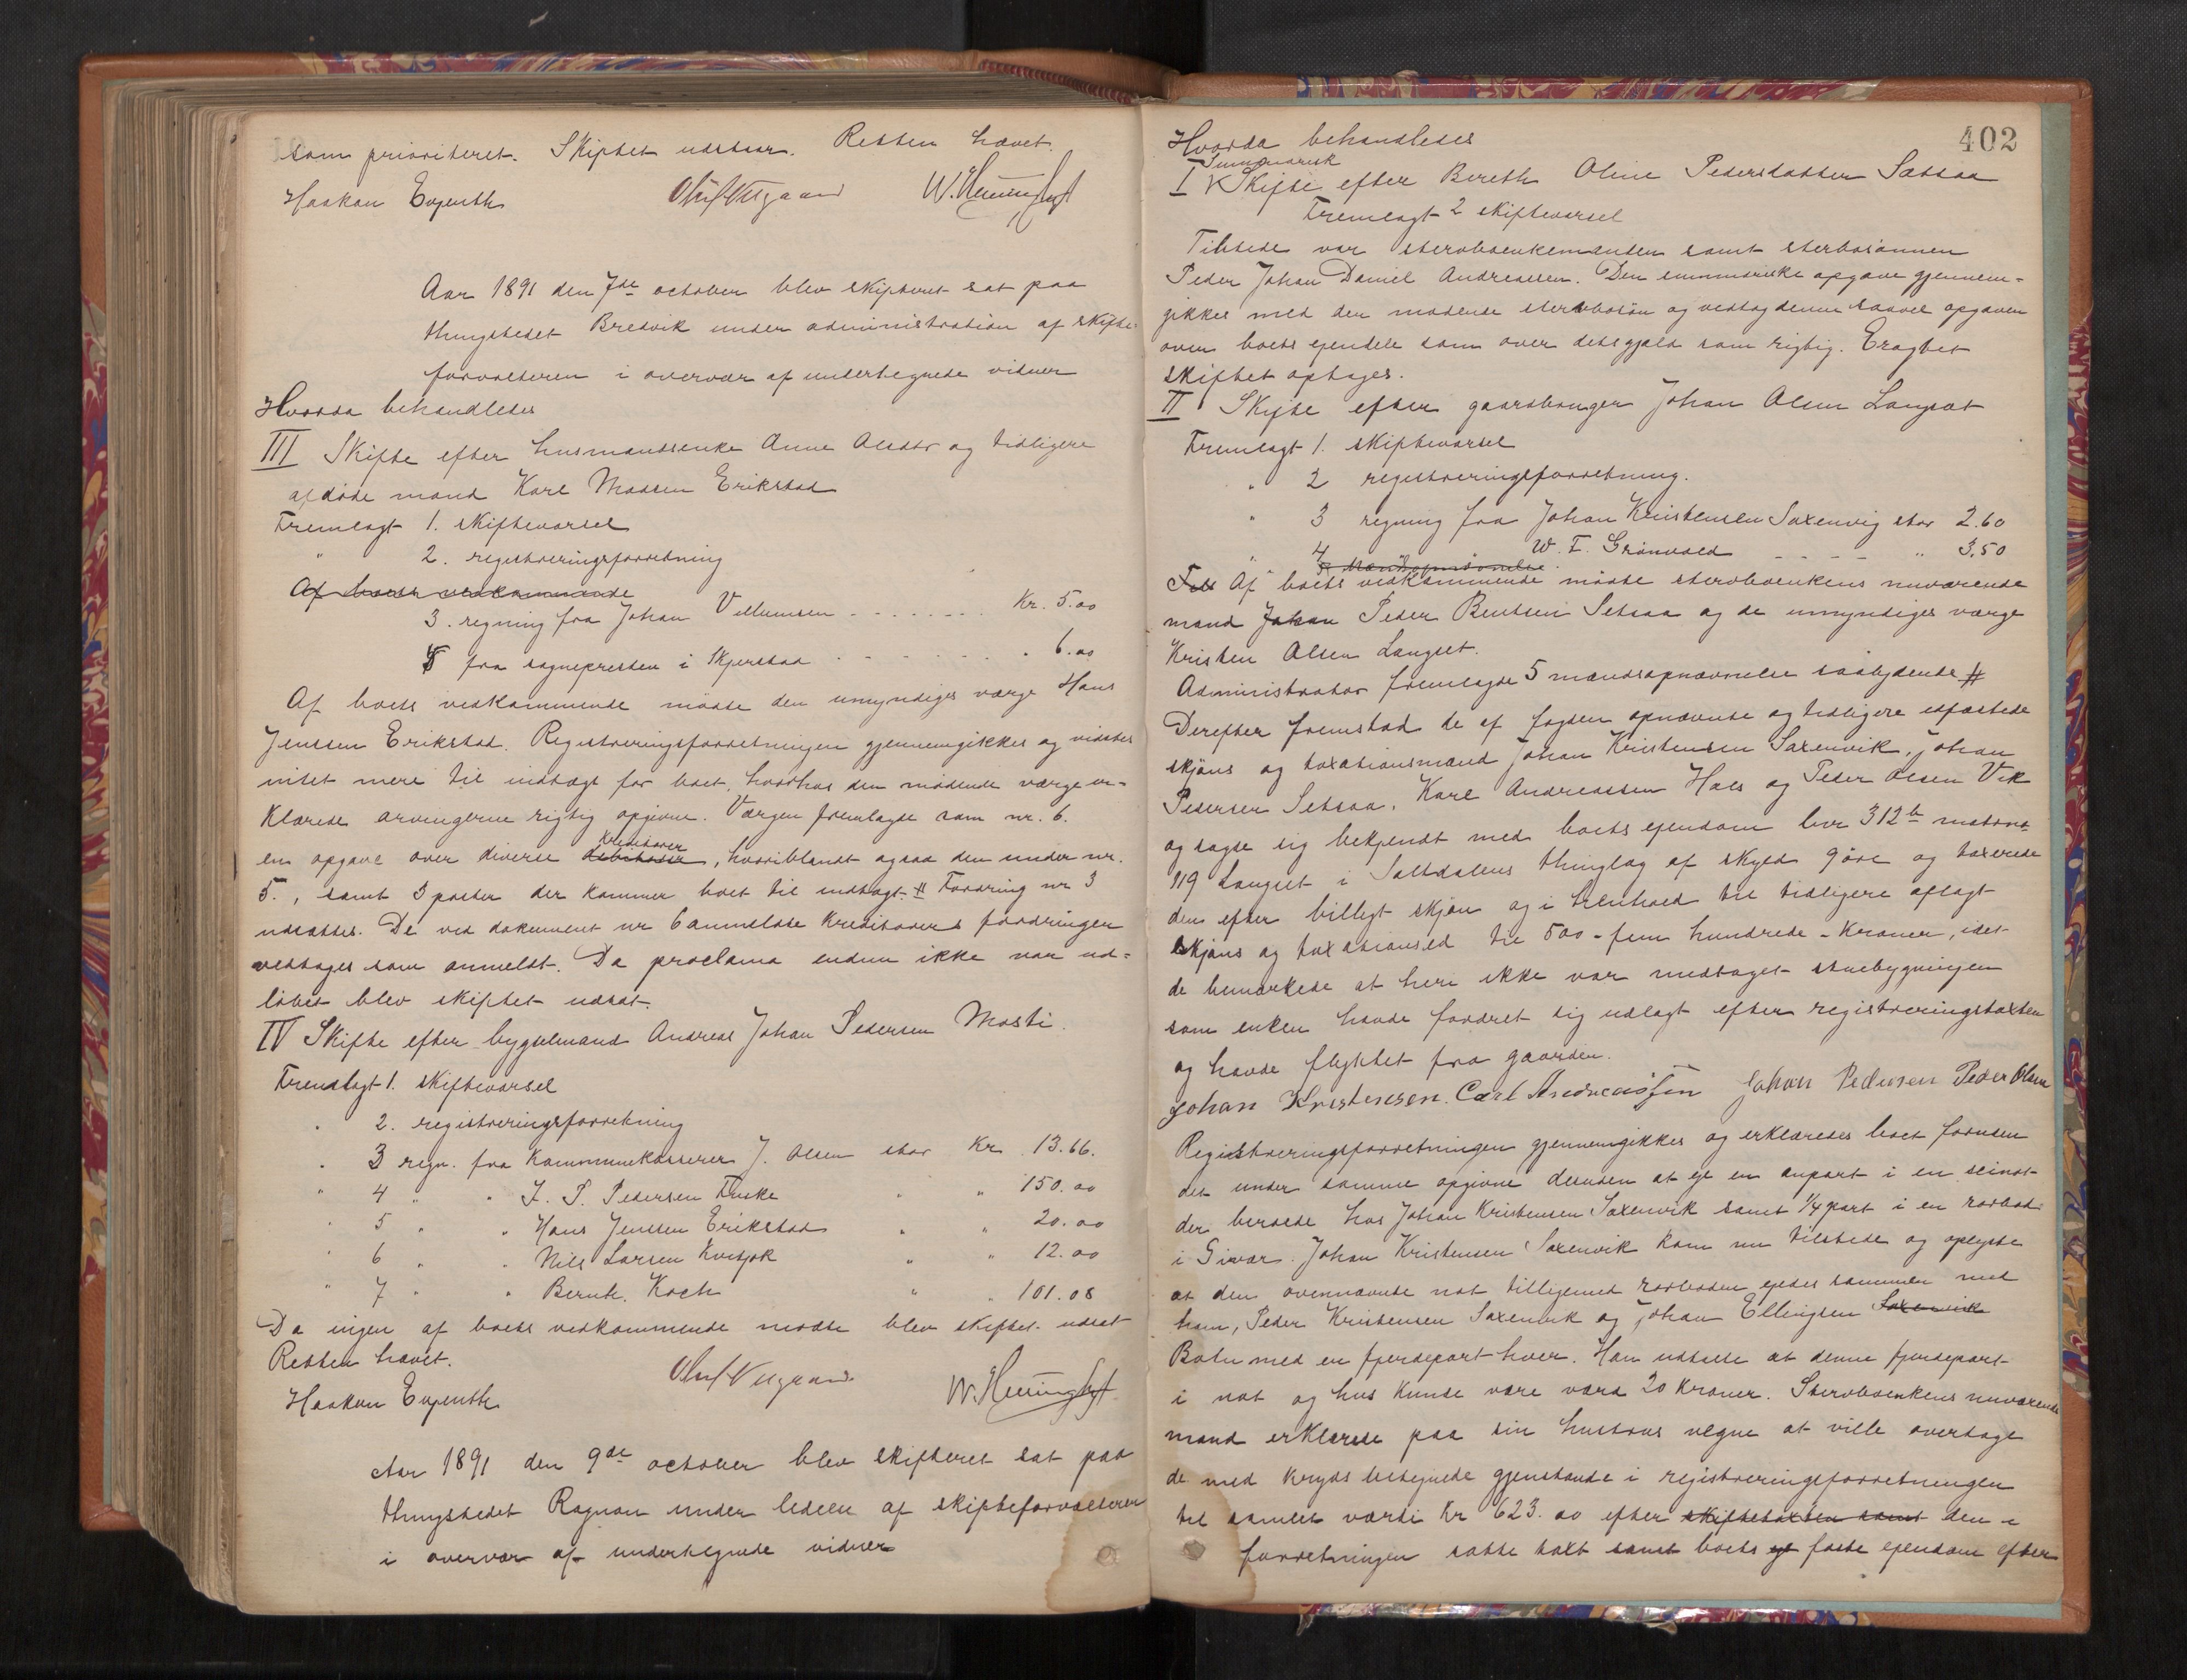 som prioriteret. Skiftet udstaar. Retten hævet.
Haakon Evjenth Oluf Vesgaard W. Henninghoff
Aar 1891 den 7de october blev skifteret sat paa
thingstedet Bredvik under administration af skifte
forvalteren i overvær af undertegnede vidner
Hvorda behandledes
III Skifte efter husmandsenke Anne Olsdtr og tidligere
afdøde mand Karl Madsen Erikstad
Fremlagt 1. skiftevarsel
" 2. registreringsforretning
Af boets vedkommende
3. regning fra Johan Villumsen - - - - - - - Kr. 5.00
4 fra sognepresten i Skjerstad - - - - - - - " 6.00
Af boets vedkommende mødte den umyndiges værge Hans
Jenssen Erikstad. Registreringsforretningen gjennemgikkes og vidstes
intet mere til indtægt for boet, hvorhos den mødende værge er-
klærede arvingerne rigtig opgivne. Værgen fremlagde som nr. 6.
en opgave over diverse debitorer kreditorer, hvoriblandt ogsaa den under nr.
5., samt 3 poster der kommer boet til indtægt. # Fordring nr 3
udsattes. De ved dokument nr 6 anmeldte kreditorers fordringer
vedtages som anmeldt. Da proclama endnu ikke var ud=
løbet blev skiftet udsat.
IV Skifte efter bygselmand Andreas Johan Pedersen Mosti.
Fremlagt 1. skiftevarsel
" 2. registreringsforretning
" 3 regn. fra kommunekasserer J. Olsen stor Kr 13.66.
" 4 " " J. P. Pedersen Fuske " " 150.00
" 5 " " Hans Jenssen Erikstad " " 20.00
" 6 " " Nils Larsen " " 12.00
" 7 " " Bernh. Koch " " 101.08
Da ingen af boets vedkommende mødte blev skiftet udsat
Retten hævet.
Haakon Evjenth Oluf Vesgaard W. Henninghoff
Aar 1891 den 9de october blev skifteret sat paa
thingstedet Rognan under ledelse af skifteforvalteren
i overvær af undertegnede vidner
402
Hvorda behandledes
I Summarisk Skifte efter Bereth Oline Pedersdatter Sætsaa
Fremlagt 2 skiftevarsel
Tilstede var sterboenkemanden samt sterbosønnen
Peder Johan Daniel Andreassen. Den summariske opgave gjennem-
gikkes med den mødende sterbosøn og vedtog denne saavel opgaven
over boets eiendele som over dets gjæld som rigtig. Eragtet
skiftet optages.
II Skifte efter gaardbruger Johan Olsen Langsæt
Fremlagt 1. skiftevarsel
" 2 registreringsforretning.
" 3 regning fra Johan Kristensen Saxenvig stor 2.60
" 4 W. F. Grønvold - - - - " 3.50
5 Mandsopnævnelse.
Af boets vedkommende mødte sterboenkens nuværende
mand Johan Peder Bentsen Setsaa og de umyndiges værge
Kristen Olsen Langset.
Administrator fremlagde 5 mandsopnævnelse saalydende #
Derefter fremstod de af fogden opnævnte og tidligere edfæstede
skjøns og taxationsmænd Johan Kristensen Saxenvik, Johan
Pedersen Setsaa, Karl Andreassen Hals og Peder Olsen Vik
og sagde sig bekjendt med boets eiendom lnr 312b matrnr
119 Langset i Saltdalens thinglag af skyld 9 øre og taxerede
den efter billigt skjøn og i henhold til tidligere aflagt
skjøns og taxationsed til 500 - fem hundrede - kroner, idet
de bemærkede at heri ikke var medtaget stuebygningen
som enken havde fordret sig udlagt efter registreringstaxten
og havde flyttet fra gaarden.
Johan Kristensen. Carl Andreassen Johan Pedersen Peder Olsen
Registreringsforretningen gjennemgikkes og erklæredes boet foruden
det under samme opgivne desuden at eje en anpart i en seinot
der beroede hos Johan Kristensen Saxenvik samt 1/4 part i en rorbod
i Givær. Johan Kristensen Saxenvik kom nu tilstede og oplyste
at den ovennævnte not tilligemed rorboden ejedes sammen med
ham, Peder Kristensen Saxenvik og Johan Ellingsen Saxenvik
Botn med en fjerdepart hver. Han udtalte at denne fjerdepart
i not og hus kunde være værd 20 kroner. Sterboenkens nuværende
mand erklærede paa sin hustrus vegne at ville overtage
de med kryds betegnede gjenstande i registreringsforretningen
til samlet værdi Kr 623.00 efter skiftetaxten samt den i
forretningen satte taxt samt boets faste ejendom efter